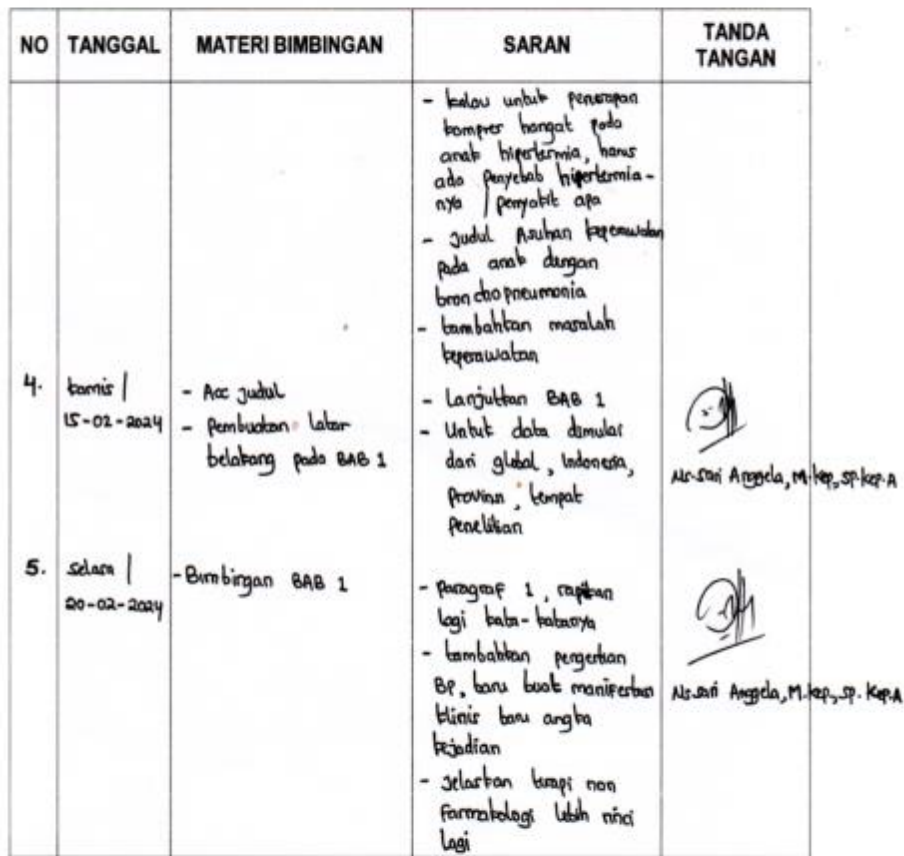 NO TANGGAL MATERI BIMBINGAN SARAN TANDA TANGAN
- kalau untuk penerapan
kompres hangat pada
anak hipertermia, harus
ada penyebab hipertermia-
nya / penyakit apa
- Judul Asuhan keperawatan
pada anak dengan
bronchopneumonia
- tambahkan masalah
keperawatan
4. kamis / 15-02-2024
- Acc judul
- Pembuatan latar
belakang pada BAB 1
- Lanjutkan BAB 1
- Untuk data dimulai
dari global, Indonesia,
Provinsi, tempat
Penelitian
Ns. Sari Anggela, M.kep, sp.kep.A
5. selasa / 20-02-2024
- Bimbingan BAB 1
- Paragraf 1, rapikan
lagi kata-katanya
- tambahkan pengertian
BP, baru buat manifestasi
klinis baru angka
kejadian
- Jelaskan terapi non
Farmakologi lebih rinci
lagi
Ns. Sari Anggela, M.kep, sp. Kep.A